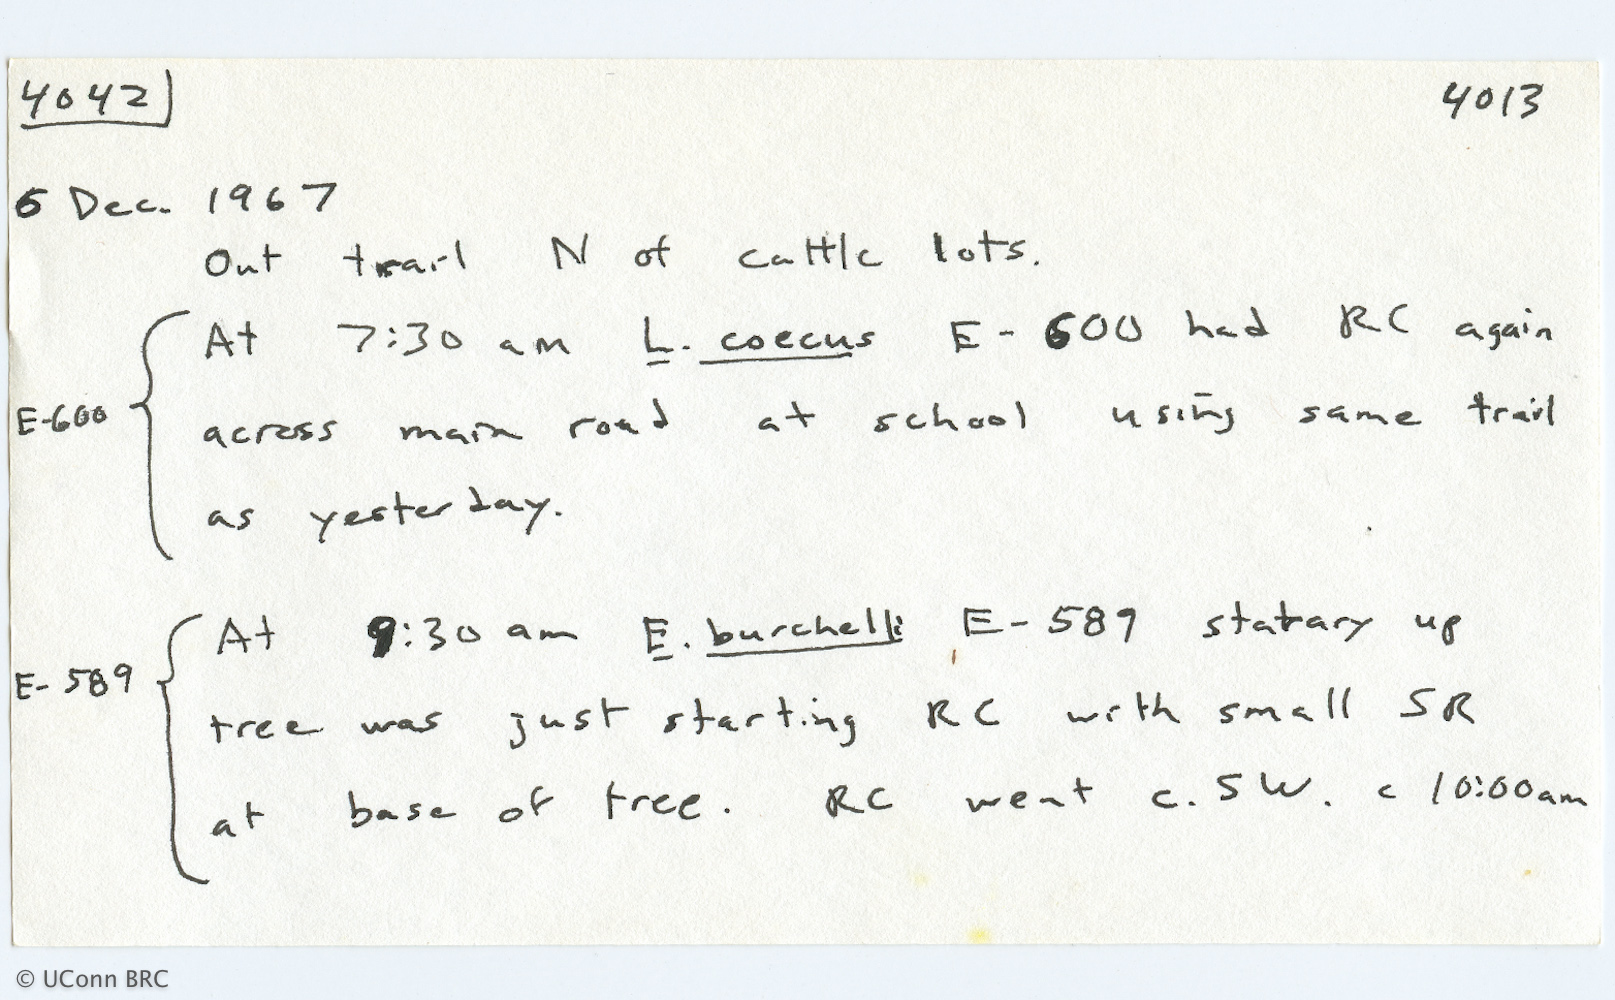 4042 4013
6 Dec. 1967
Out trail N of cattle lots.
At 7:30 am L. coecus E-600 had RC again
E-600 across main road at school using same trail
as yesterday.
At 9:30 am E. burchelli E-589 statary up
E-589 tree was just starting RC with small SR
at base of tree. RC went c. SW. c 10:00am
© UConn BRC